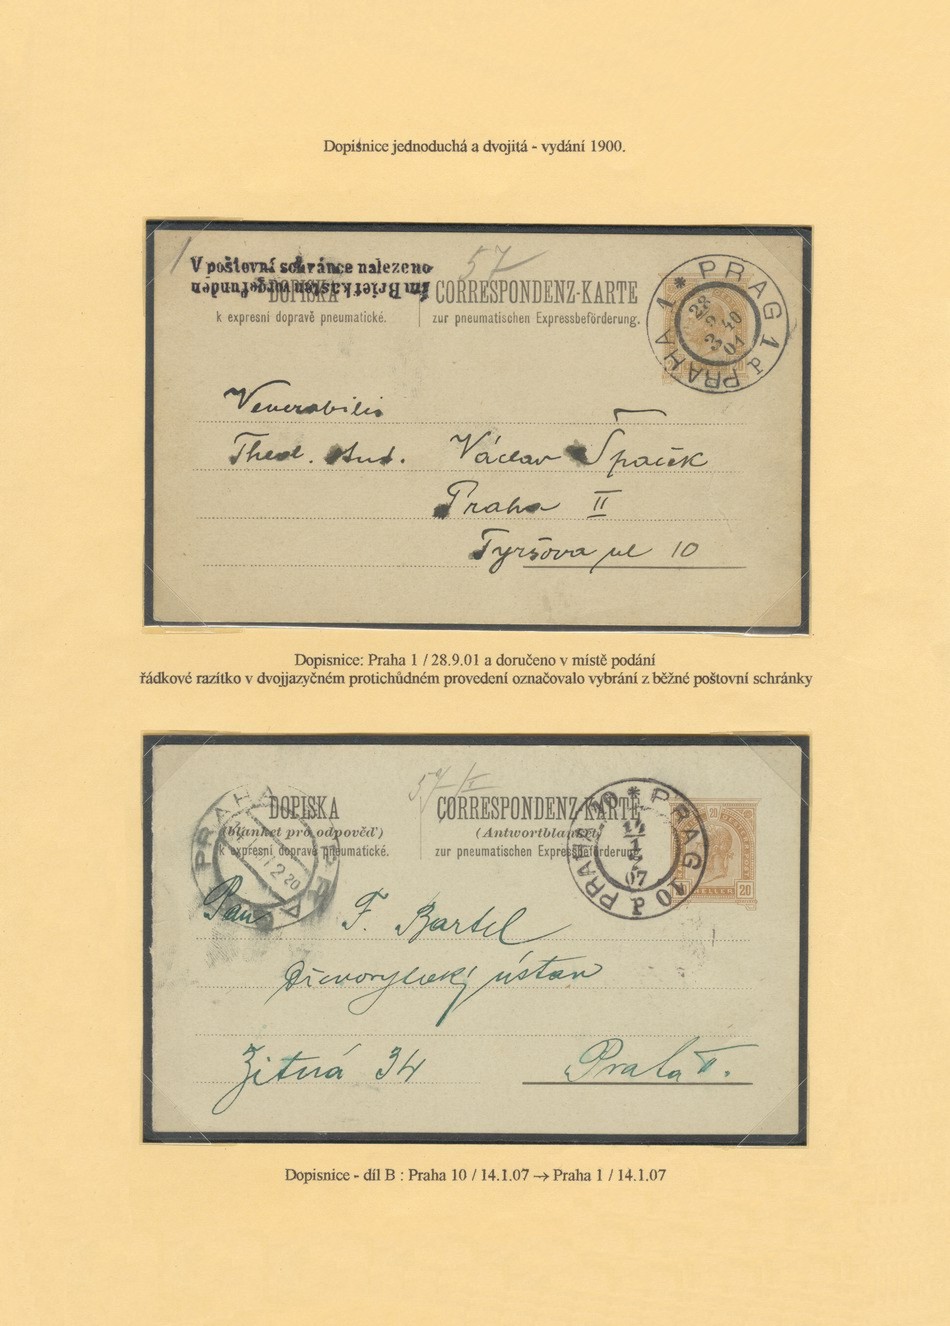 Dopisnice jednoduchá a dvojitá - vydání 1900.
1
V poštovní schránce nalezeno
Im Briefkasten vorgefunden
57
DOPISKA CORRESPONDENZ-KARTE
k expresní dopravě pneumatické. zur pneumatischen Expressbeförderung.
PRAG 1 P PRAHA 1
28
9
3 40
01
Venerabilis
Theol. Stud. Václav Špaček
Praha II
Tyršova ul 10
Dopisnice: Praha 1 / 28.9.01 a doručeno v místě podání
řádkové razítko v dvojjazyčném protichůdném provedení označovalo vybrání z běžné poštovní schránky
57/I
DOPISKA CORRESPONDENZ-KARTE
(blanket pro odpověď) (Antwortblanket)
k expresní dopravě pneumatické. zur pneumatischen Expressbeförderung.
PRAHA
2 20
PRAG 10 P PRAHA 10
14
1
2
07
20
20 HELLER 20
Pan F. Bartel
Dřevorytecký ústav
Žitná 34 Praha II.
Dopisnice - díl B : Praha 10 / 14.1.07 → Praha 1 / 14.1.07